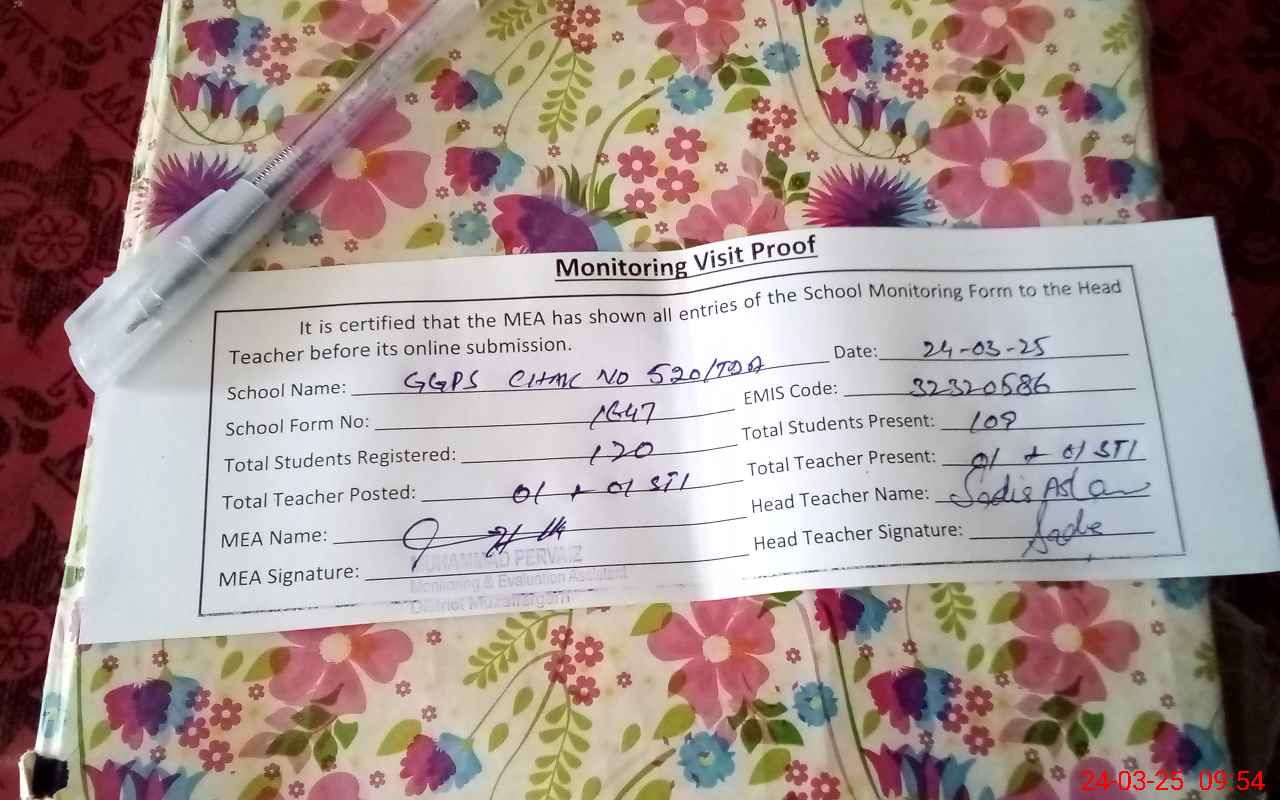 Monitoring Visit Proof
It is certified that the MEA has shown all entries of the School Monitoring Form to the Head
Teacher before its online submission.
School Name: GGPS CHAK NO 520/TDA Date: 24-03-25
School Form No: 1647 EMIS Code: 32320586
Total Students Registered: 120 Total Students Present: 109
Total Teacher Posted: 01 + 01 STI Total Teacher Present: 01 + 01 STI
MEA Name: Head Teacher Name: Sadis Aslam
MEA Signature: Head Teacher Signature:
MUHAMMAD PERVAIZ
Monitoring & Evaluation Assistant
District Muzaffargarh
24-03-25 09:54